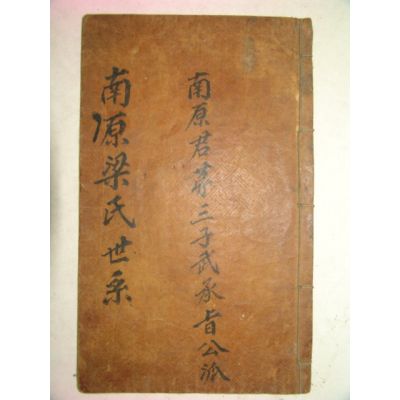 南原君第三子武承旨公派
南原梁氏世系